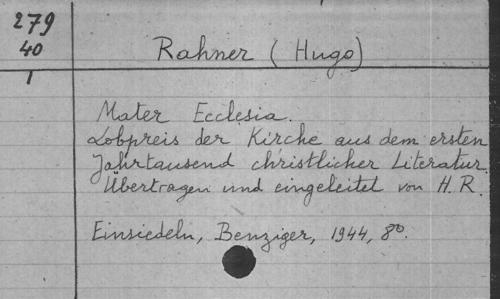 279
40
1
Rahner (Hugo)
Mater Ecclesia.
Lobpreis der Kirche aus dem ersten
Jahrtausend christlicher Literatur.
Übertragen und eingeleitet von H. R.
Einsiedeln, Benziger, 1944, 8º.